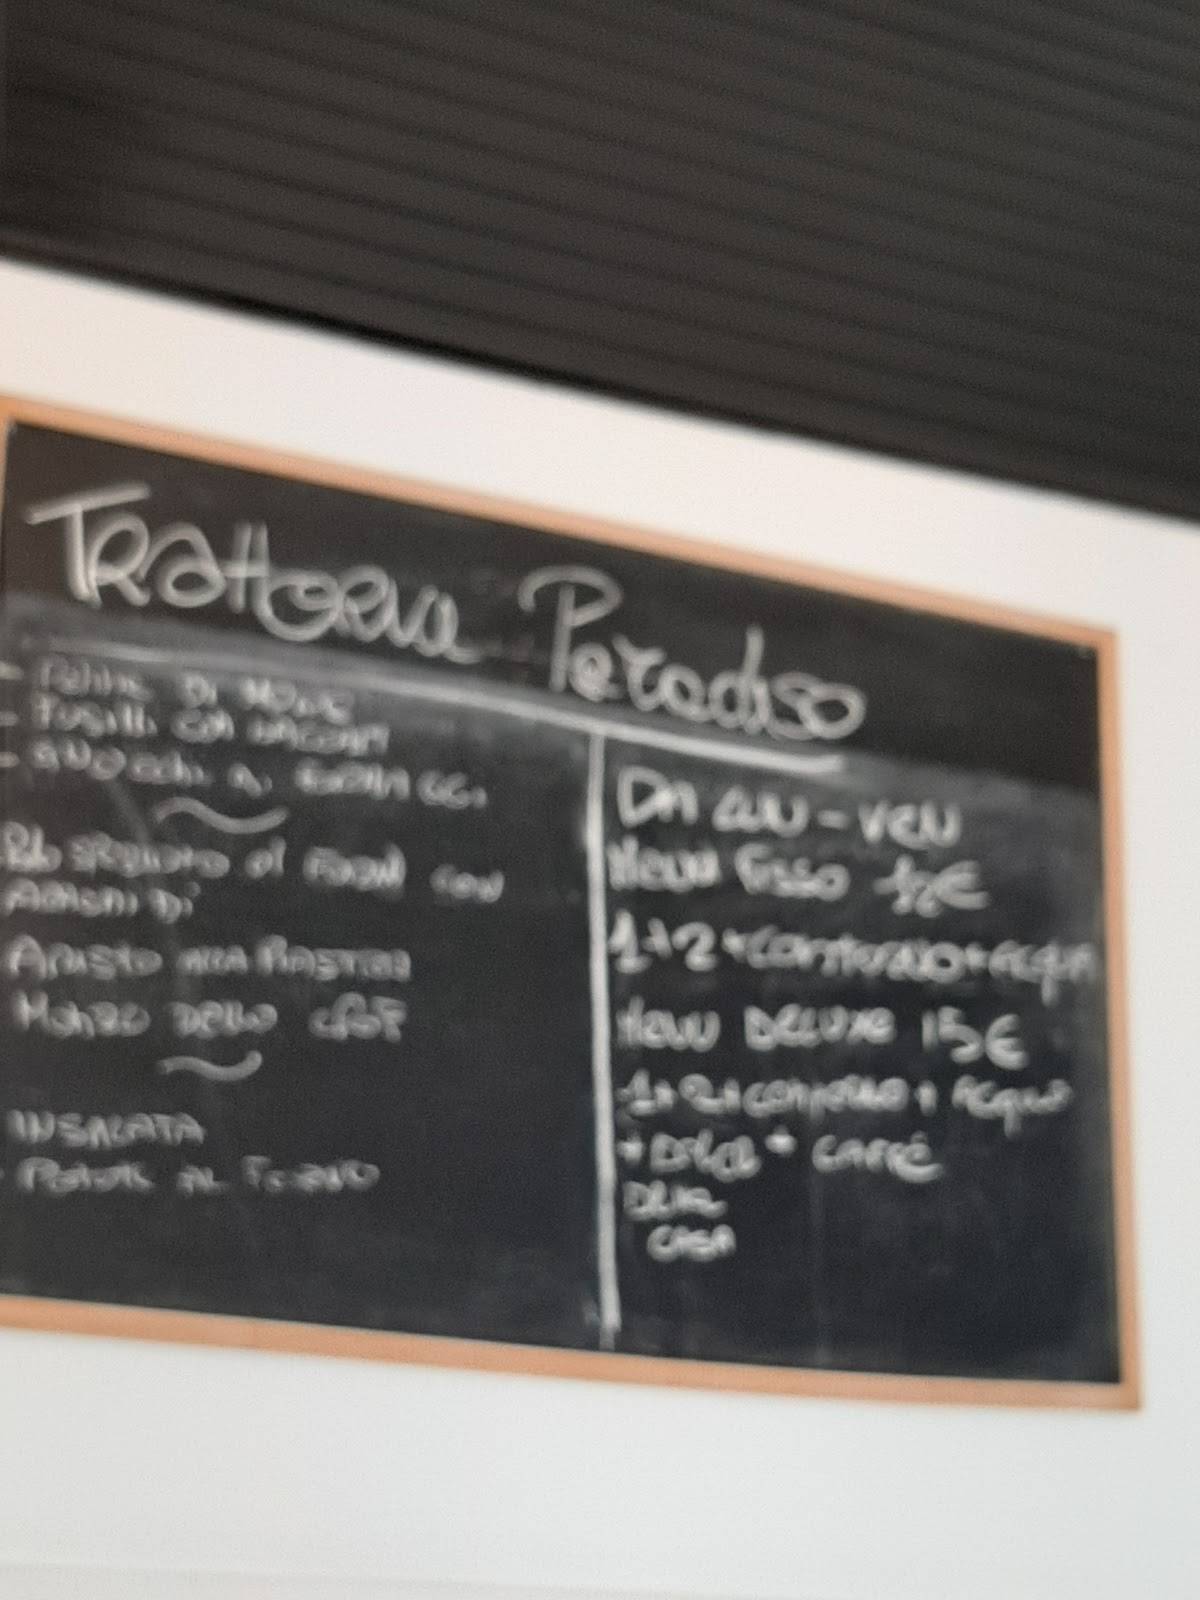 Trattoria Paradiso
- Fusilli con
- gnocchi ai formaggi
al forno con
Arista alla piastra
dello chef
INSALATA
- Patate al forno
DA LUN - VEN
Menu Fisso 12€
1+2+contorno+acqua
Menu DELUXE 15€
1+2+contorno+Acqua
+ Dolce + CAFFÈ
Della
CASA